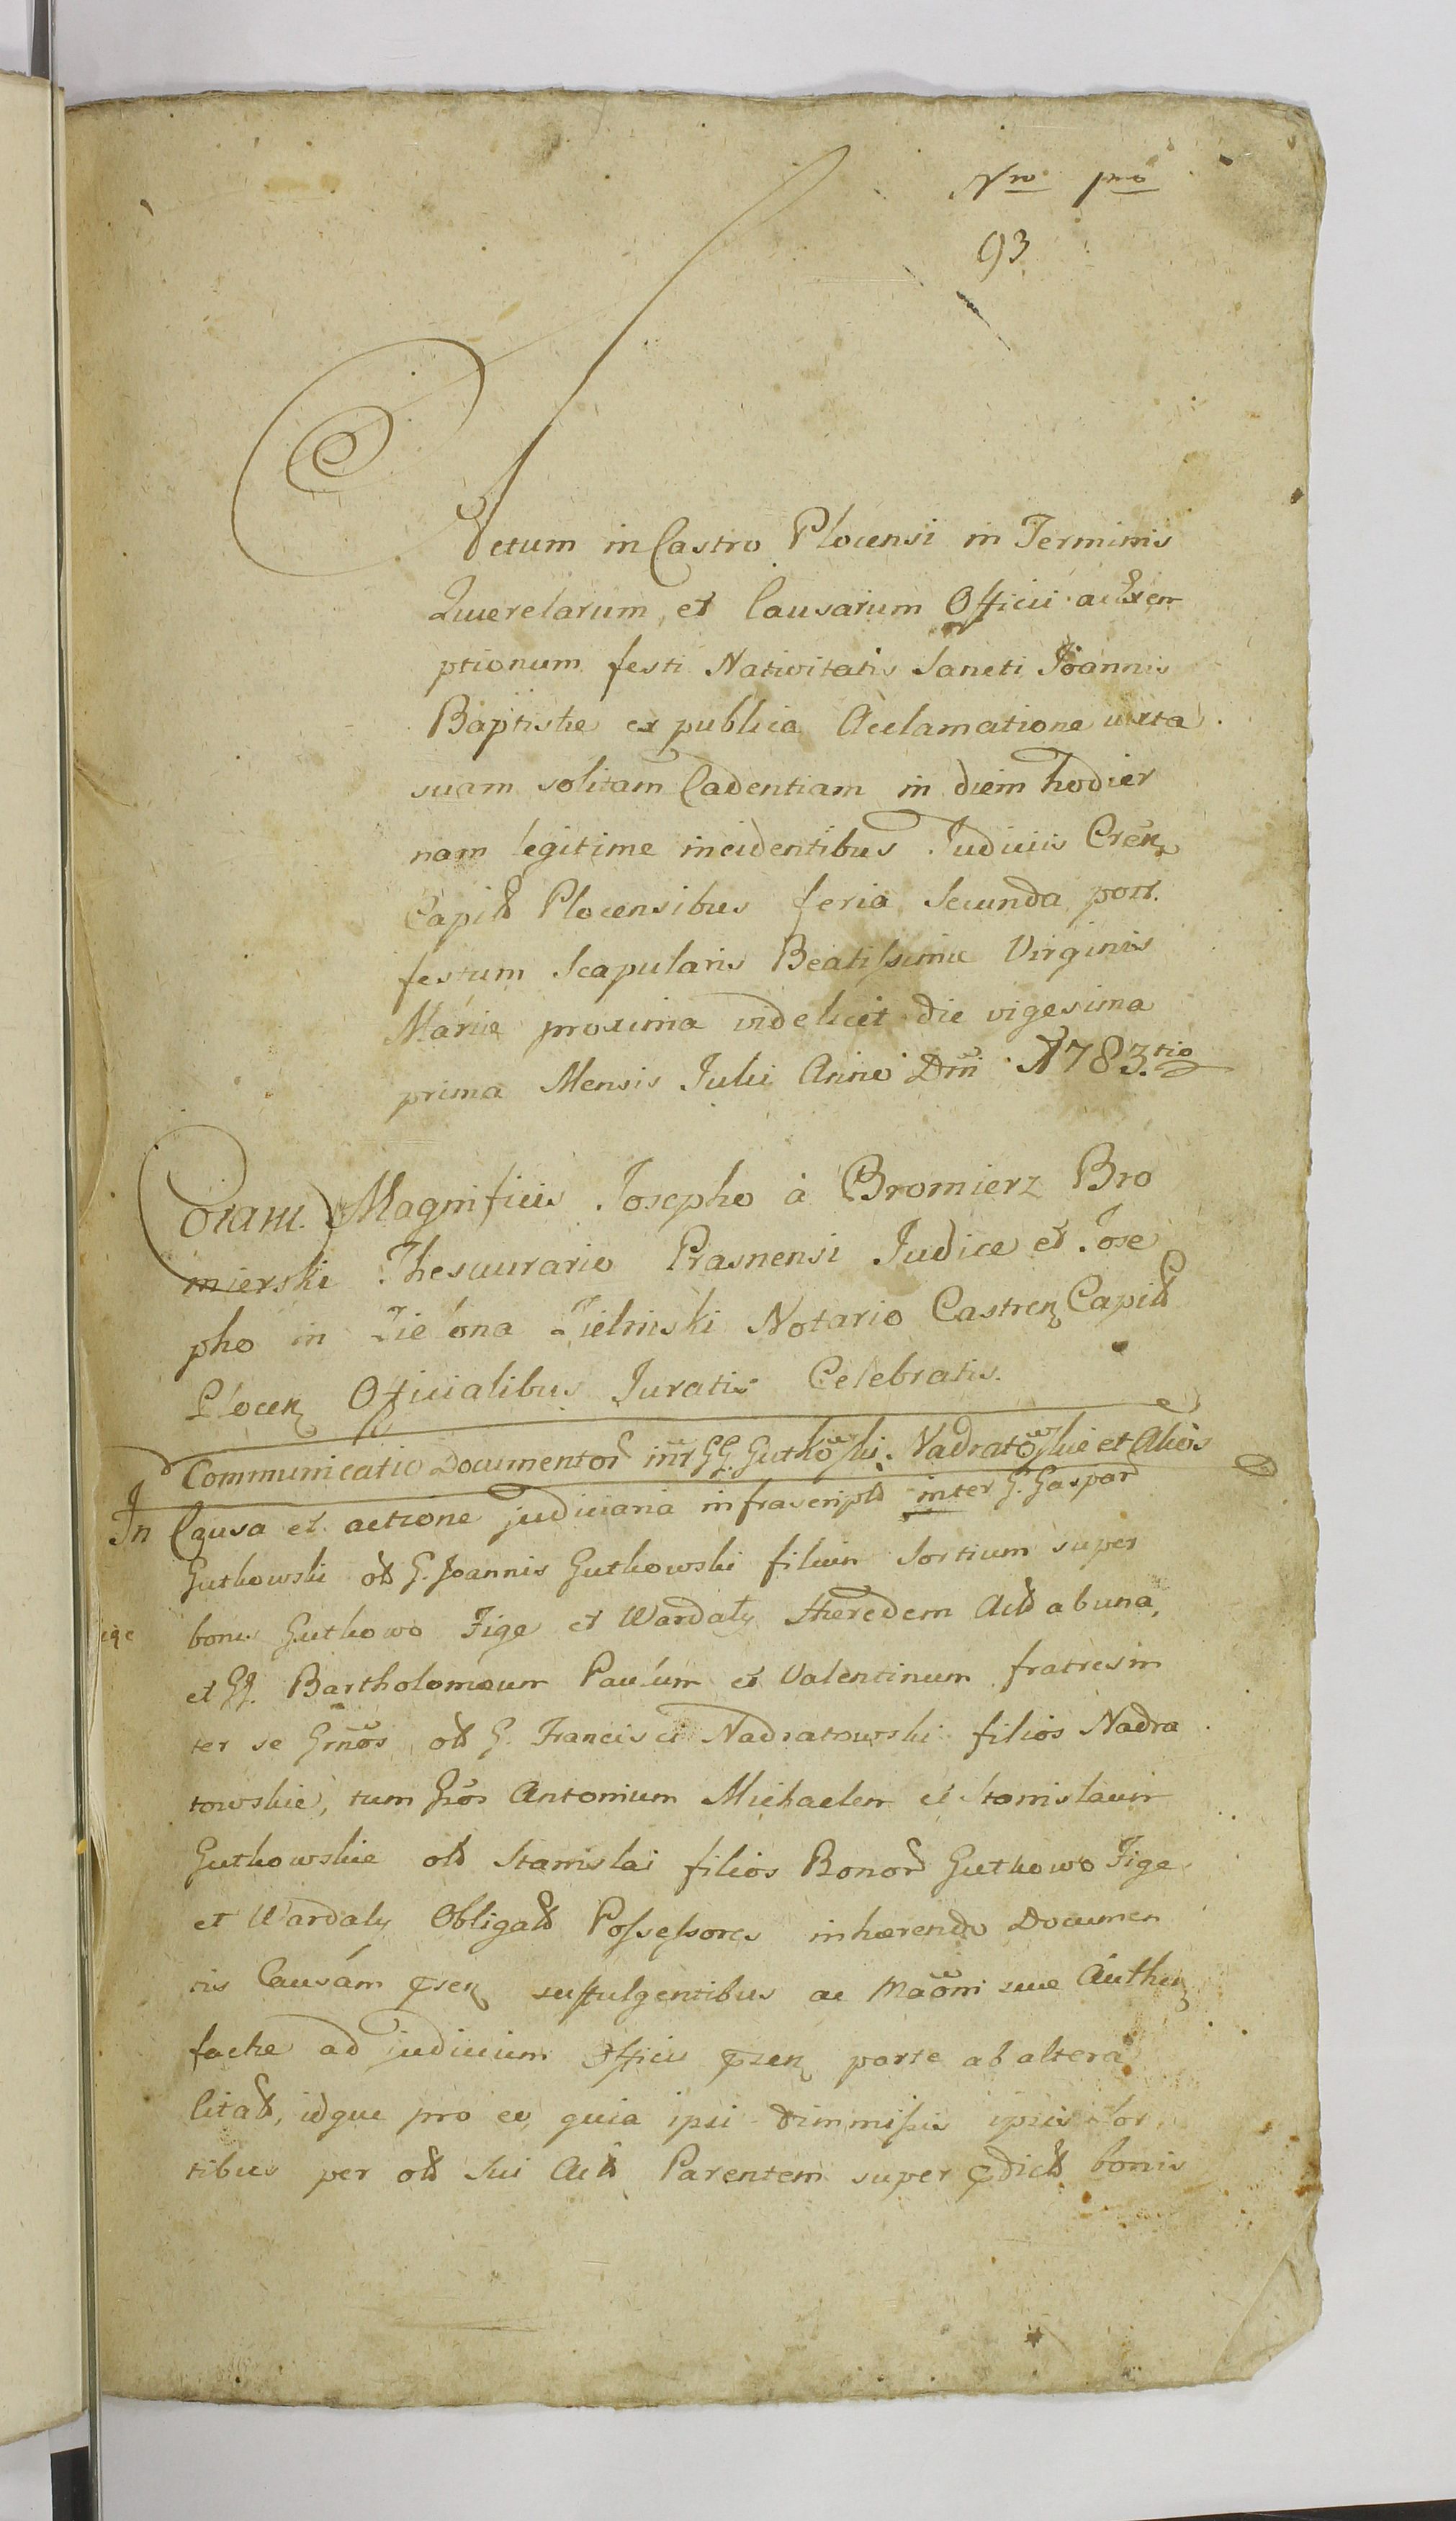 Nro pmo
93
Actum in Castro Plocensi in Terminis
Querelarum, et Causarum Officii ac Exem
ptionum festi Nativitatis Sancti Joannis
Baptistæ ex publica Acclamatione iuxta
suam solitam Cadentiam in diem hodier
nam legitime incidentibus Judiciis Cren
Capitt Plocensibus feria Secunda post
festum Scapularis Beatissimæ Virginis
Mariæ proxima videlicet die vigesima
prima Mensis Julii Anno Dni 1783.tio
Coram Magnificis Josepho à Bromierz Bro
mierski Thesaurario Prasnensi Judice et Jose
pho in Zielona Zielinski Notario Castren Capitt
Plocen Officialibus Juratis Celebratis.
Communicatio Documentor intr GG. Gutkowski. Nadratowskie et Alios
In Causa et actione judiciaria infrascript inter G. Gaspar
Gutkowski olt G. Joannis Gutkowski filium Sortium super
bonis Gutkowo Jige et Wardały Hæredem Act ab una,
ige
et GG. Bartholomæum Paulum et Valentinum fratres in
ter se Grnos olt G. Francisci Nadratowski filios Nadra
towskie, tum Gsos Antonium Michaelem et Stanislaum
Gutkowskie olt Stanislai filios Bonor Gutkowo Jige
et Wardały Obligatt Possessores inhærendo Documen
tis Causam psen suffulgentibus ac Maoni suæ Authen
factæ ad judicium Officii psen parte ab altera
Citatt, idque pro eo, quia ipsi dimmissis ipsis Sor
tibus per olt Sui Act Parentem super pdict bonis